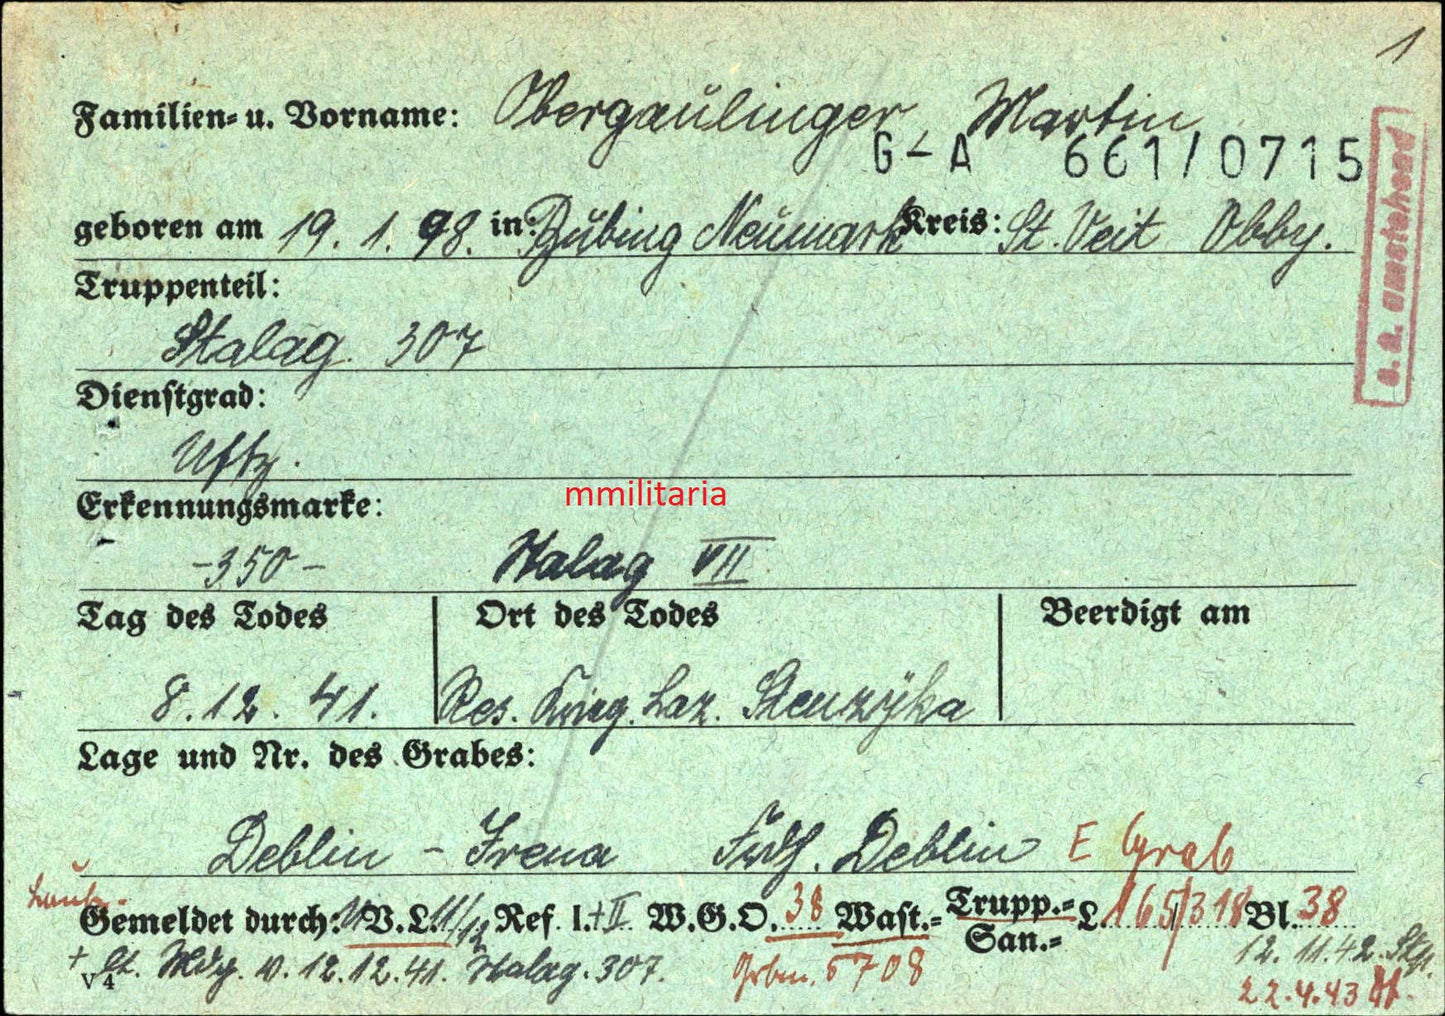 1
Familien- u. Vorname: Obergaulinger Martin
G-A 661/0715
geboren am 19. 1. 98. in: Neumark Kreis: St. Veit Obby.
s. a. umstehend
Truppenteil:
Stalag 307
Dienstgrad:
Uffz.
Erkennungsmarke:
mmilitaria
-350- Stalag VII
Tag des Todes Ort des Todes Beerdigt am
8. 12. 41. Res. Krieg. Laz. Stenzyka
Lage und Nr. des Grabes:
Deblin - Irena Frdh. Deblin E Grab
Gemeldet durch: V.L. 11/12 Ref I. + II W.G.O. 38 Wast.= Trupp.= L. 165/318 Bl. 38
San.=
+ lt. Mdg. v. 12.12.41. Stalag. 307. 5708 12. 11. 42.
V 4 22.4.43